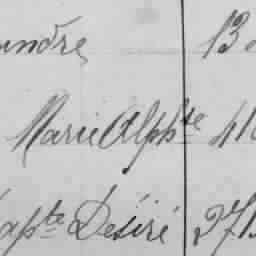 andre, 13
Marie Alphse 41
Bapte Désiré 271